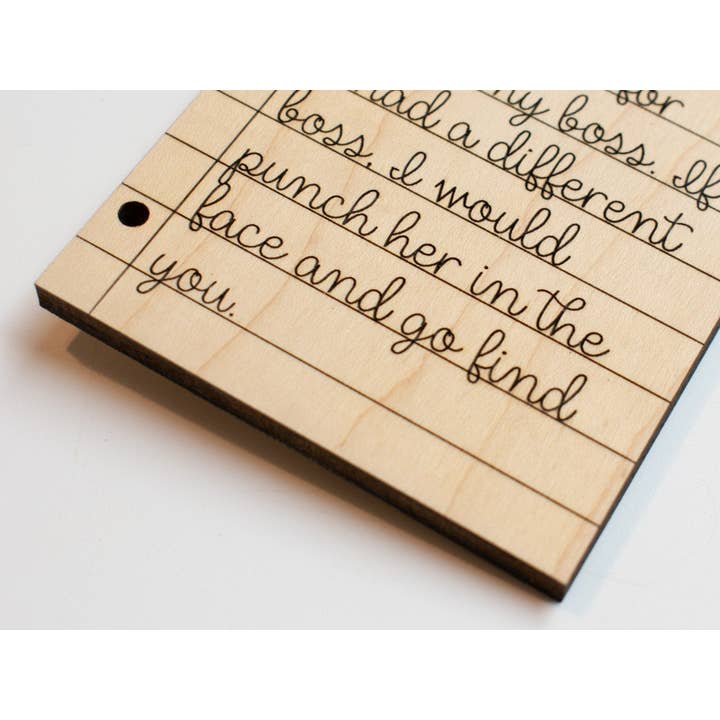 for
my boss. If
had a different
boss, I would
punch her in the
face and go find
you.